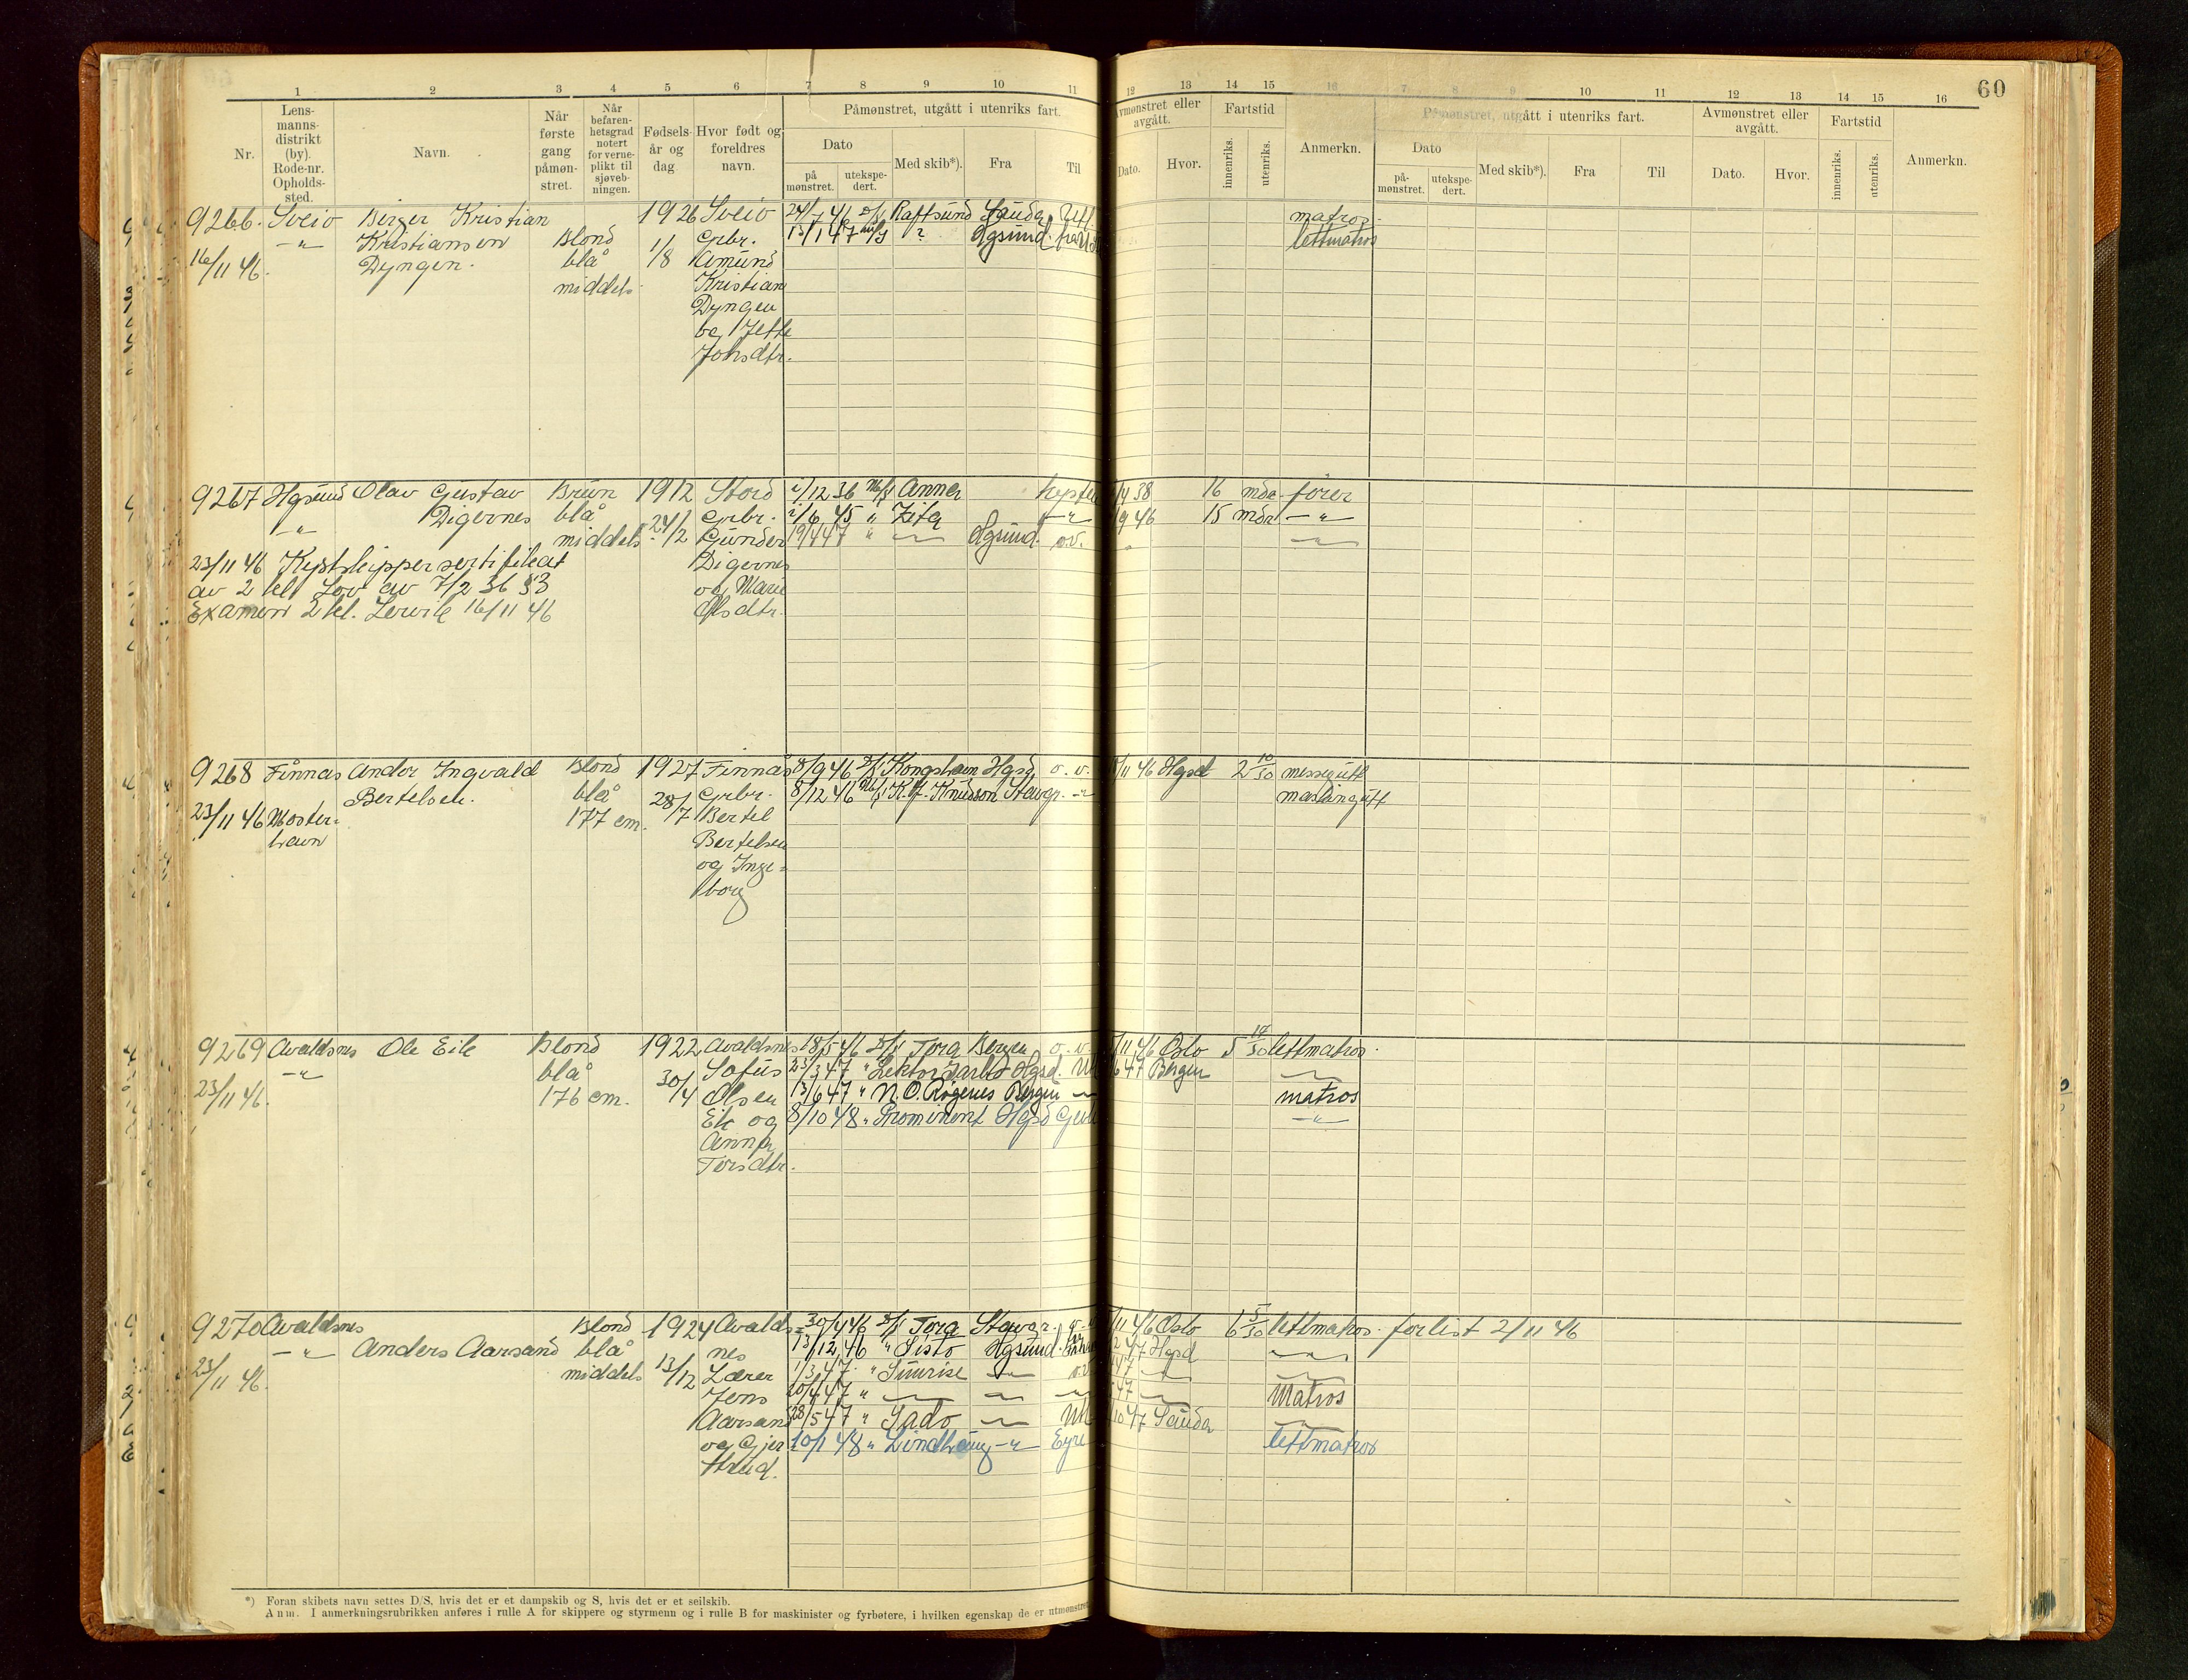 60
1 2 3 4 5 6 7 8 9 10 11 12 13 14 15 16 7 8 9 10 11 12 13 14 15 16
Nr.
Lens-
manns-
distrikt
(by).
Rode-nr.
Opholds-
sted.
Navn.
Når
første
gang
påmøn-
stret.
Når
befaren-
hetsgrad
notert
for verne-
plikt til
sjøveb-
ningen.
Fødsels-
år og
dag
Hvor født og
foreldres
navn.
Påmønstret, utgått i utenriks fart.
Dato
på
mønstret.
utekspe-
dert.
Med skib*).
Fra
Til
Avmønstret eller
avgått.
Dato.
Hvor.
Fartstid
innenriks.
utenriks.
Anmerkn.
Påmønstret, utgått i utenriks fart.
Dato
på-
mønstret.
utekspe-
dert.
Med skib*).
Fra
Til
Avmønstret eller
avgått.
Dato.
Hvor.
Fartstid
innenriks.
utenriks.
Anmerkn.
9266. Sveio Berger Kristian 1926 Sveio 24/7 46 D/S Raftsund Sauda Utl. matros.
-"- Kristiansen Blond 1/1 Grbr. 13/1 47 M/S ? Hgsund. lettmatros
16/11 46. Dyngen. blå 1/8 Amund
middels. Kristian
Dyngen
og Jette
Johsdtr.
9267 Hgsund Olav Gustav Brun 1912 Stord 2/12 36 M/S Anna 38 16 mdr fører
-"- Digernes blå 24/2 Grbr. 2/6 45 " Zita -"- 9 46 15 mdr -"-
middels. Gunder 19/4 47 " Hgsund. o.v.
23/11 46 Kystskippersertifikat Digernes
av 2 kl Lov av 7/2 36 §3 og Marie
Examen 2 kl. Lervik 16/11 46 Olsdtr.
9268 Finnås Andor Ingvald Blond 1927 Finnås 8/9 46 D/S Kongshavn Hgsd. o.v. 11 46 Hgsd 2 10/30 messegutt
Bertelsen. blå 28/7 Grbr. 8/12 46 M/S K. J. Knudson Stavgr. -"- maskingutt
23/11 46 Moster- 177 cm. Bertel
havn Bertelsen
og Inge-
borg
9269 Avaldsnes Ole Eik Blond 1922 Avaldsnes 18/5 46 D/S Tora Bergen o.v. 11 46 Oslo 5 14/30 lettmatros.
-"- blå 30/4 Sofus 23/3 47 " Lektor Garbo Hgsd. Utl 6 47 Bergen
23/11 46. 176 cm. Olsen 13/6 47 " N. O. Rogenes Bergen matros
Eik og 8/10 48 " Prominent Hgsd -"-
Anna
Torsdtr.
9270 Avaldsnes Blond 1924 Avalds- 30/4 46 D/S Tora Stavgr. 11 46 Oslo 6 5/30 lettmatros. forlist 2/11 46
-"- Anders Aarsand blå nes 13/12 46 " Sisto Hgsund. 2 47 Hgsd
23/11 46. middels 13/12 Lærer 1/3 47 " Sunrise o.v. 47
Jens 20/4 47 " 47 Matros
Aarsand 28/5 47 " Sado Utl 10 47 Sauda
og Gjer- 10/1 48 " Lindhaug -"- Eyre lettmatros
thrud.
*) Foran skibets navn settes D/S, hvis det er et dampskib og S, hvis det er et seilskib.
Anm. I anmerkningsrubrikken anføres i rulle A for skippere og styrmenn og i rulle B for maskinister og fyrbøtere, i hvilken egenskap de er utmønstret